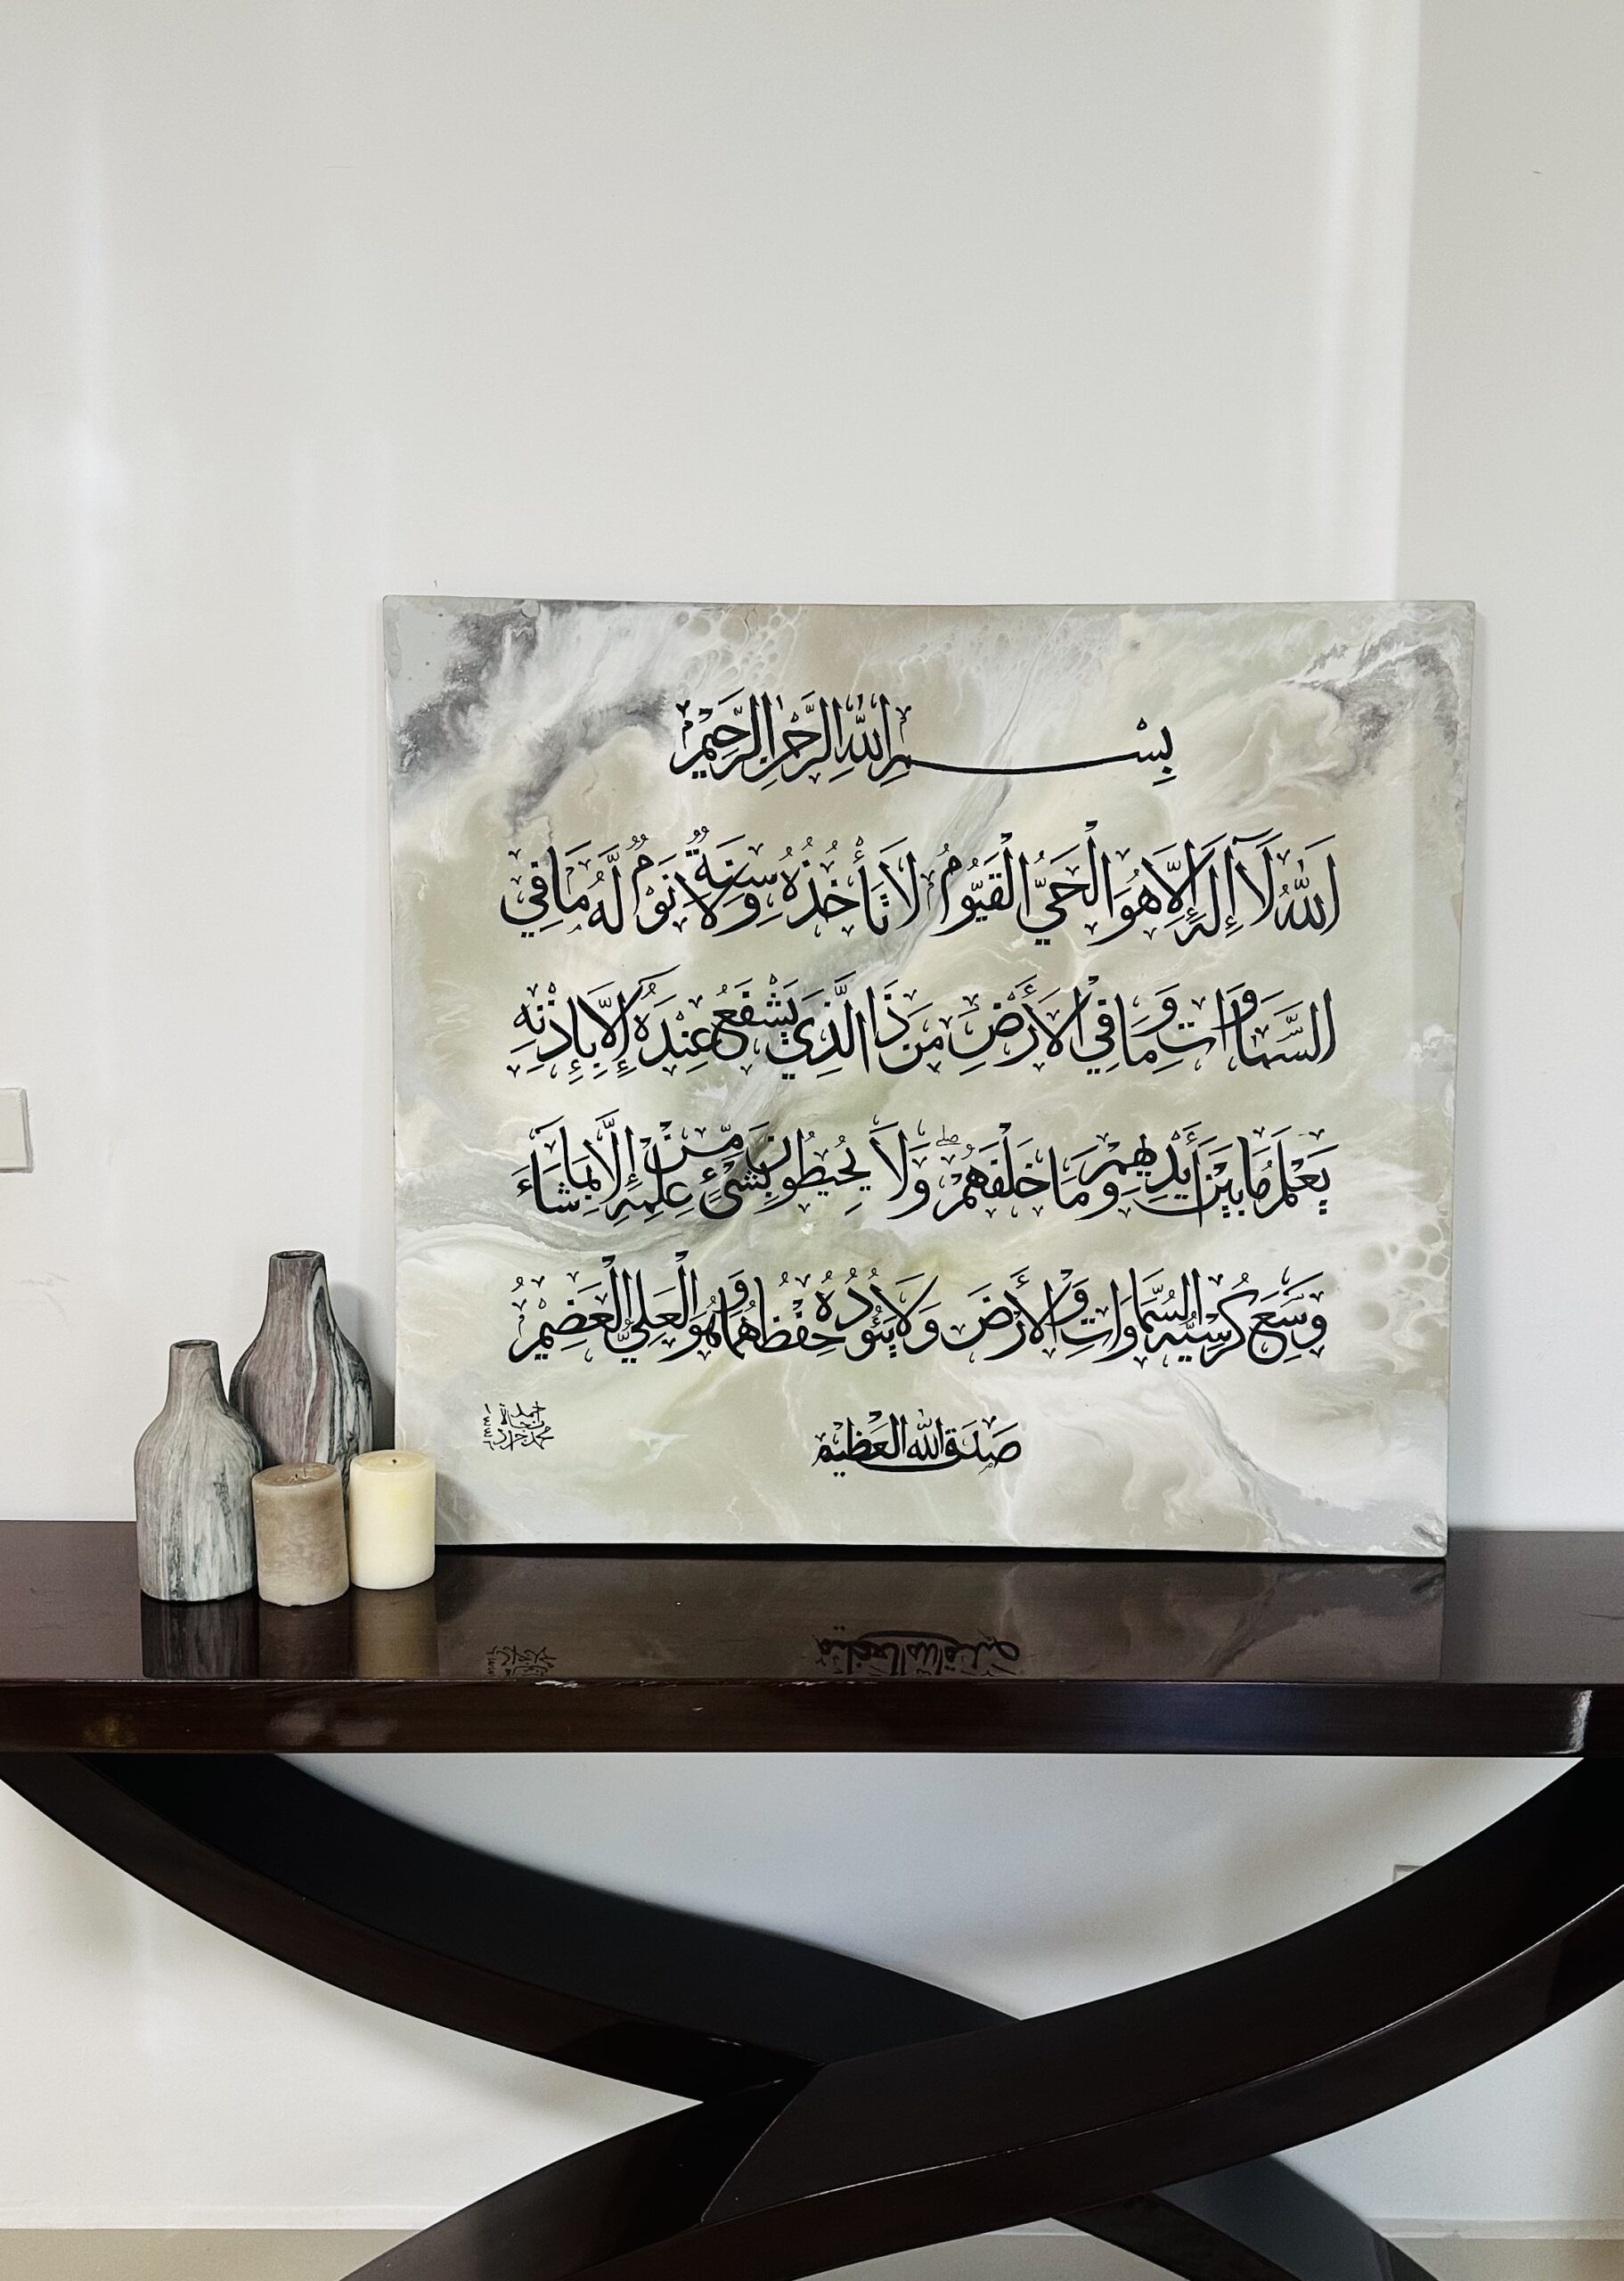 بِسْمِ اللهِ الرَّحْمٰنِ الرَّحِيْمِ
اَللهُ لَآ إِلٰهَ إِلَّا هُوَ الْحَيُّ الْقَيُّوْمُ لَا تَأْخُذُهُ سِنَةٌ وَلَا نَوْمٌ لَّهُ مَا فِي
السَّمَاوَاتِ وَمَا فِي الْأَرْضِ مَنْ ذَا الَّذِي يَشْفَعُ عِنْدَهُ إِلَّا بِإِذْنِهِ
يَعْلَمُ مَا بَيْنَ أَيْدِيْهِمْ وَمَا خَلْفَهُمْ ۖ وَلَا يُحِيْطُونَ بِشَيْءٍ مِّنْ عِلْمِهِ إِلَّا بِمَا شَاءَ
وَسِعَ كُرْسِيُّهُ السَّمَاوَاتِ وَالْأَرْضَ وَلَا يَئُودُهُ حِفْظُهُمَا وَهُوَ الْعَلِيُّ الْعَضِيْمُ
صَدَقَ اللهُ الْعَظِيْمُ
١٤٤٦